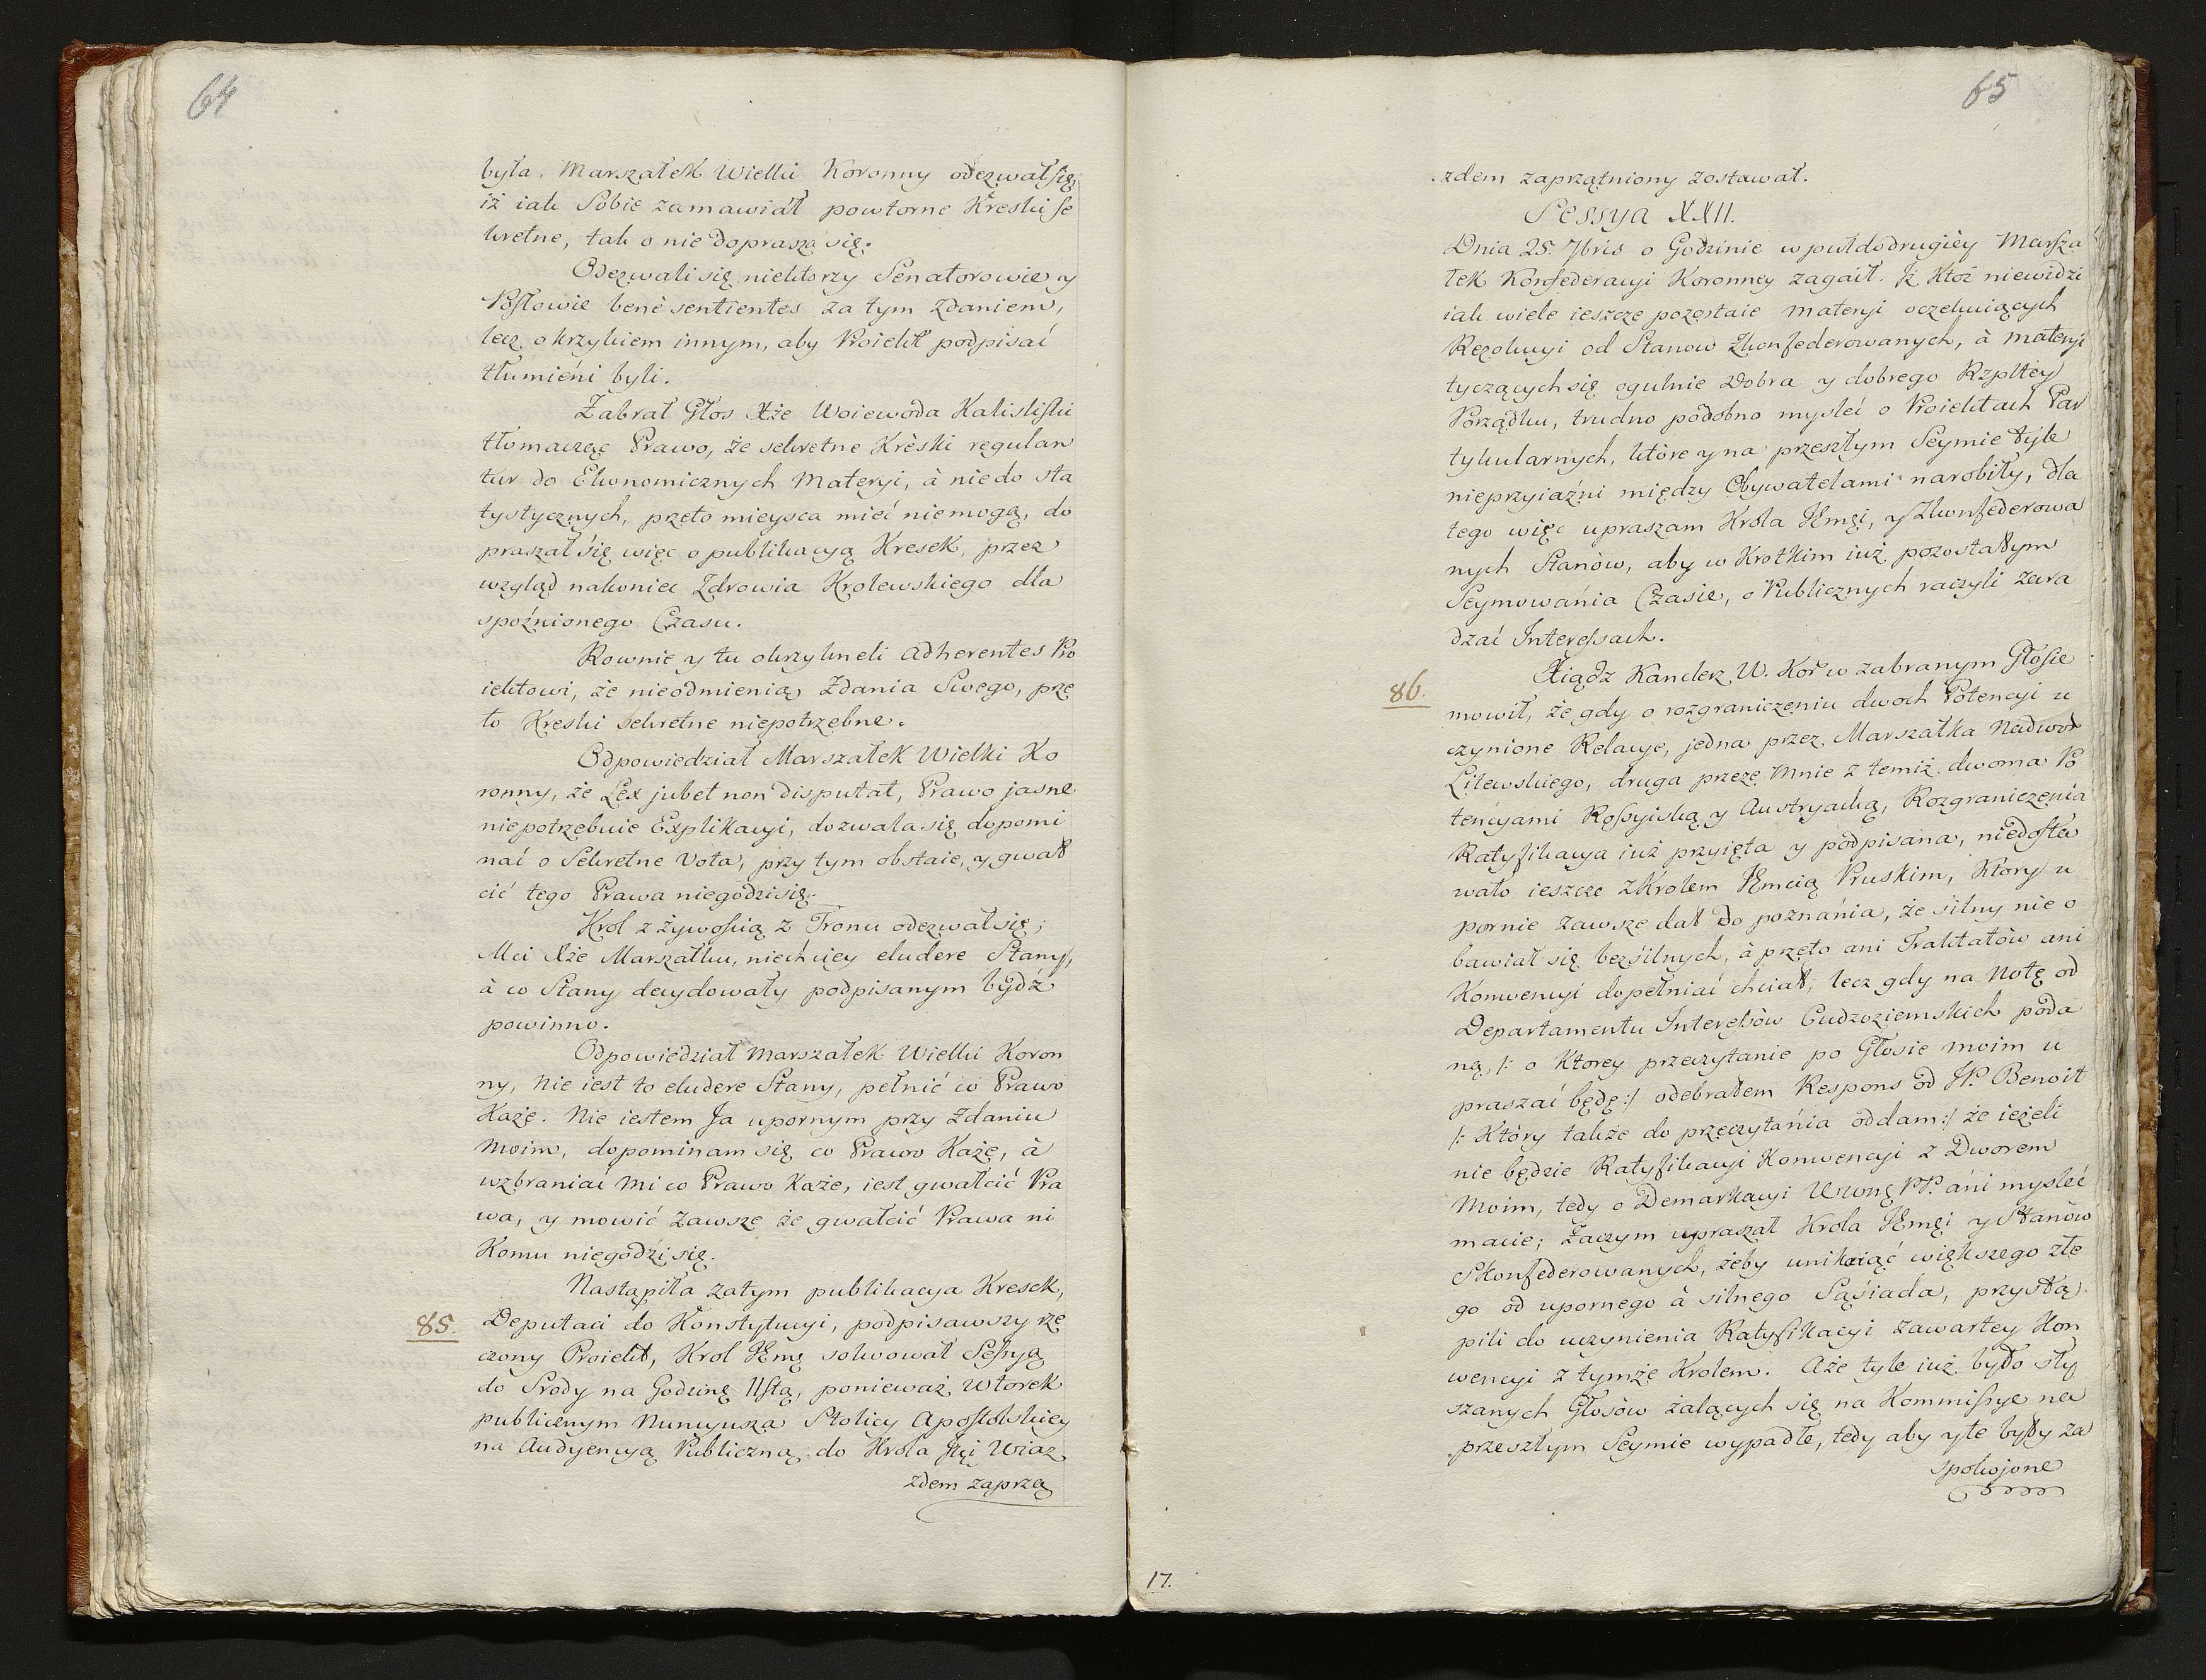 64
była. Marszałek Wielki Koronny odezwał się,
iż iak Sobie zamawiał powtorne Kreski se
kretne, tak o nie doprasza się.
Odezwali się niektorzy Senatorowie y
Posłowie benè sentientes za tym Zdaniem,
lecz okrzykiem innym, aby Proiekt podpisać
tłumieni byli.
Zabrał Głos Xże Woiewoda Kaliski
tłomacząc Prawo, że sekretne Kréski regulan
tur do Ekonomicznych Materyi, à nie do sta
tystycznych, przeto mieysca mieć niemogą, do
praszał się więc o publikacyą Kresek, przez
wzgląd nakoniec Zdrowia Krolewskiego dla
spoźnionego Czasu.
Rownie y tu okrzykneli Adherentes Pro
iektowi, że nieodmienią Zdania Swego, prze
to Kreski sekretne niepotrzebne.
Odpowiedział Marszałek Wielki Ko
ronny, że Lex jubet non disputat, Prawo jasne
niepotrzebuie Explikacyi, dozwala się dopomi
nać o Sekretne Vota, przy tym obstaie, y gwał
cić tego Prawa niegodzi się.
Krol z żywością z Tronu odezwał się;
Mci Xże Marszałku, niechciey eludere Stany,
à co Stany decydowały podpisanym bydź
powinno.
Odpowiedział Marszałek Wielki Koron
ny, Nie iest to eludere Stany, pełnić co Prawo
Każe. Nie iestem Ja upornym przy Zdaniu
Moim, dopominam się co Prawo Każe, à
wzbraniać mi co Prawo Każe, iest gwałcić Pra
wa, y mowić Zawsze że gwałcić Prawa ni
Komu niegodzi się.
Nastąpiła zatym publikacya Kresek,
85. Deputaci do Konstytucyi, podpisawszy rze
czony Proiekt, Krol JEmę solwował Sessyą
do Srody na Godzinę 11stą, ponieważ Wtorek
publicznym Nuncyusza Stolicy Apostolskiey
na Audyencyą Publiczną do Krola JKci Wiaz
zdem zaprzą
65
zdem zaprzątniony zostawał.
Sessya XXII.
Dnia 25. 7bris o Godzinie w puł do drugiéy Marsza
łek Konfederacyi Koronney zagaił. Jż Ktoż niewidzi
iak wiele ieszcze pozostaie Materyi oczekuiących
Rezolucyi od Stanow Zkonfederowanych, à Materyi
tyczących się ogulnie Dobra y dobrego Rzpltey
Porządku, trudno podobno mysleć o Proiektach Par
tykularnych, ktòre y na przeszłym Seymie tyle
nieprzyiaźni między Obywatelami narobiły, dla
tego więc upraszam Krola JEmci, y Zkonfederowa
nych Stanòw, aby w Krotkim iuż pozostałym
Seymowania Czasie, o Publicznych raczyli Zara
dzać Interessach.
86. Xiądz Kanclerz W. Kor w zabranym Głosie
mowił, że gdy o rozgraniczeniu dwoch Potencyi u
czynione Relacye, jedna przez Marszałka Nadwor
Litewskiego, druga przeze Mnie z temiż dwoma Po
tencyami Rossyiską y Austryacką, Rozgraniczenia
Ratyfikacya iuż przyięta y podpisana, niedosta
wało ieszcze z Krolem JEmcią Pruskim, Ktory u
pornie zawsze dał do poznania, że silny nie o
bawiał się bezsilnych, à przeto ani Traktatòw ani
Konwencyi dopełniać chciał, lecz gdy na Notę od
Departamentu Interessòw Cudzoziemskich poda
ną, /: o Ktorey przeczytanie po Głosie moim u
praszać będę :/ odebrałem Respons od JP. Benoit
/: Ktòry także do przeczytania oddam :/ że ieżeli
nie będzie Ratyfikacyi Konwencyi z Dworem
Moim, tedy o Demarkacyi Wconę PP. ani mysleć
macie; Zaczym upraszał Krola JEmci y Stanòw
Skonfederowanych, żeby unikaiąc większego złe
go od upornego à silnego Sąsiada, przystą
pili do uczynienia Ratyfikacyi Zawartey Kon
wencyi z tymże Krolem. A że tyle iuż było sły
szanych Głosòw żalących się na Kommissye na
przeszłym Seymie wypadłe, tedy aby y te były za
spokojone
17.